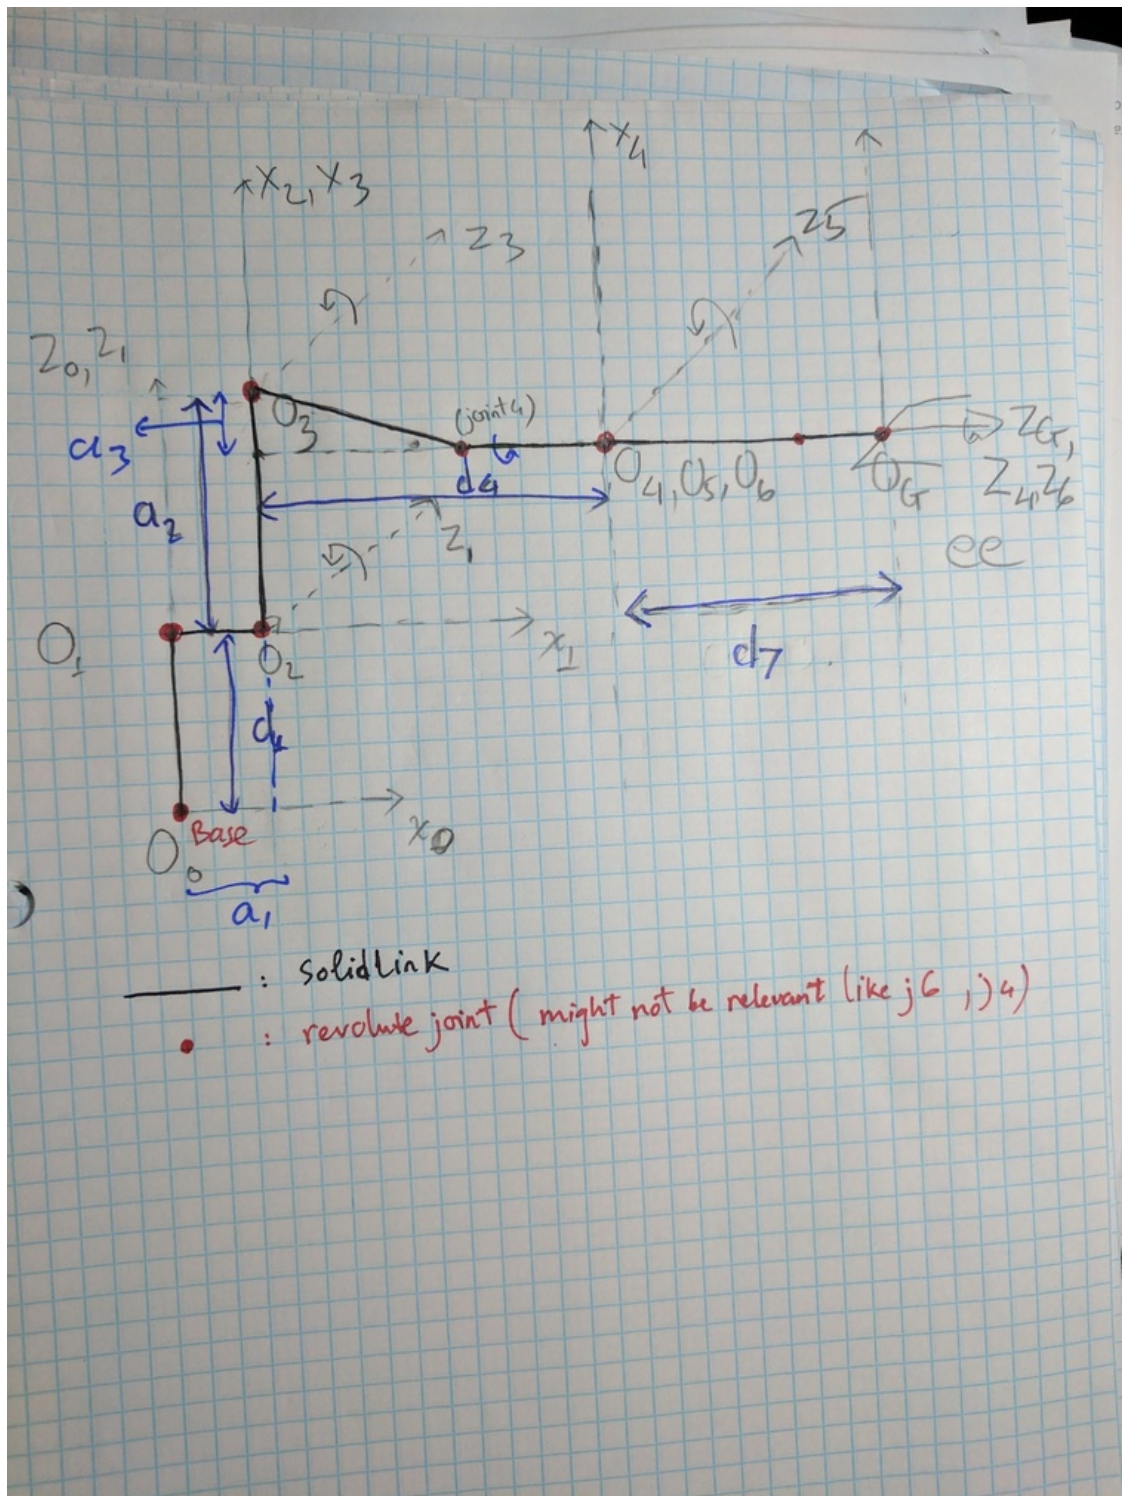 x4
x2, x3
z3
z5
z0, z1
(joint 4)
O3
a3
zG,
O4, O5, O6
OG
z4, z6
d4
a2
z1
ee
O1
x1
O2
d7
d1
x0
Base
O0
a1
: solid link
: revolute joint ( might not be relevant like j6 , j4)